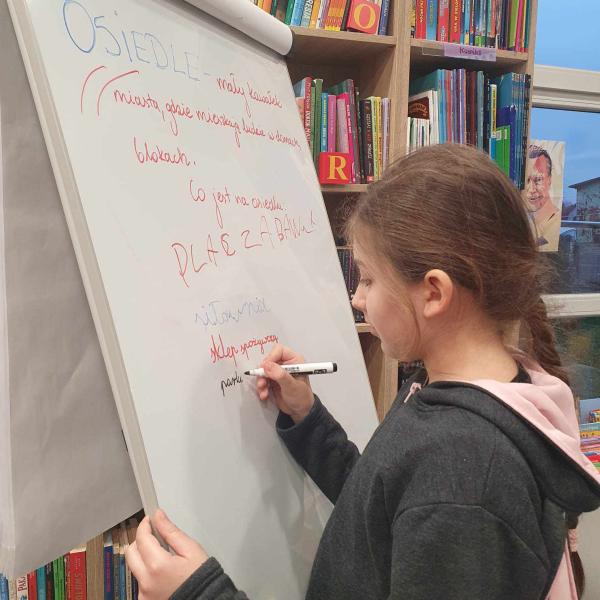 OSIEDLE - mały kawałek
miasta, gdzie mieszkają ludzie w domach
blokach.
Co jest na osiedlu.
PLAC ZABAW
siłownia
sklep spożywczy
park
O
R